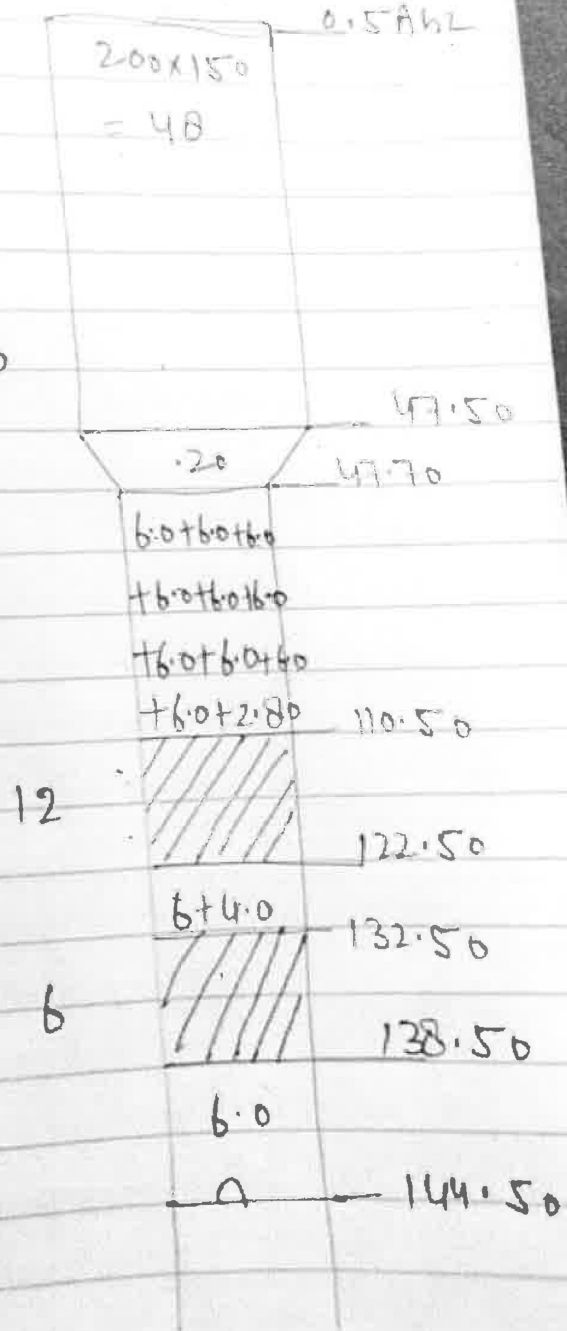 0.5 Ahz
200x150
= 48
47.50
.20
47.70
6.0+6.0+6.0
+6.0+6.0+6.0
+6.0+6.0+6.0
+6.0+2.80
110.50
12
122.50
6+4.0
132.50
6
138.50
6.0
144.50